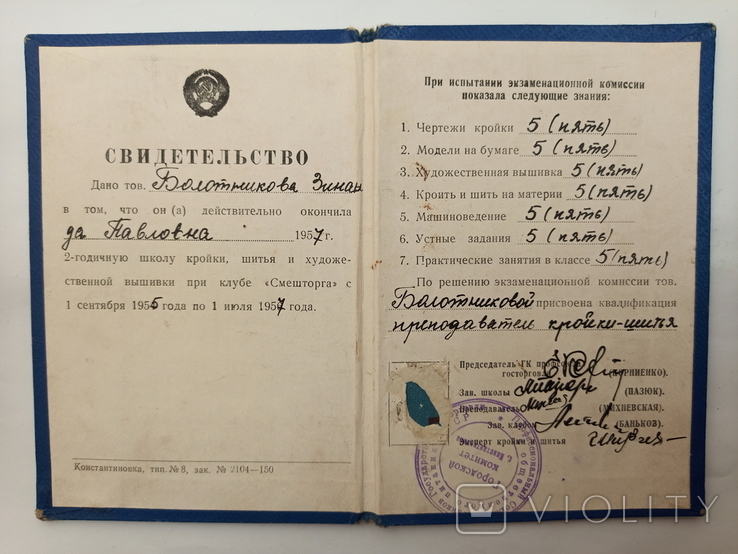 СВИДЕТЕЛЬСТВО
Дано тов. Болотникова Зинаи
в том, что он (а) действительно окончила
да Павловна 1957 г.
2-годичную школу кройки, шитья и художе-
ственной вышивки при клубе «Смешторга» с
1 сентября 1955 года по 1 июля 1957 года.
Константиновка, тип. № 8, зак. № 2104—150
При испытании экзаменационной комиссии
показала следующие знания:
1. Чертежи кройки 5 (пять)
2. Модели на бумаге 5 (пять)
3. Художественная вышивка 5 (пять)
4. Кроить и шить на материи 5 (пять)
5. Машиноведение 5 (пять)
6. Устные задания 5 (пять)
7. Практические занятия в классе 5 (пять)
По решению экзаменационной комиссии тов.
Болотниковой присвоена квалификация
преподаватель кройки-шитья
Председатель ГК профсоюза
госторговли (КОРНИЕНКО).
Зав. школы (ПАЗЮК).
Преподаватель (МИХНЕВСКАЯ)
Зав. клубом (БАНЬКОВ).
Эксперт кройки и шитья
Городской
комитет
VIOLITY